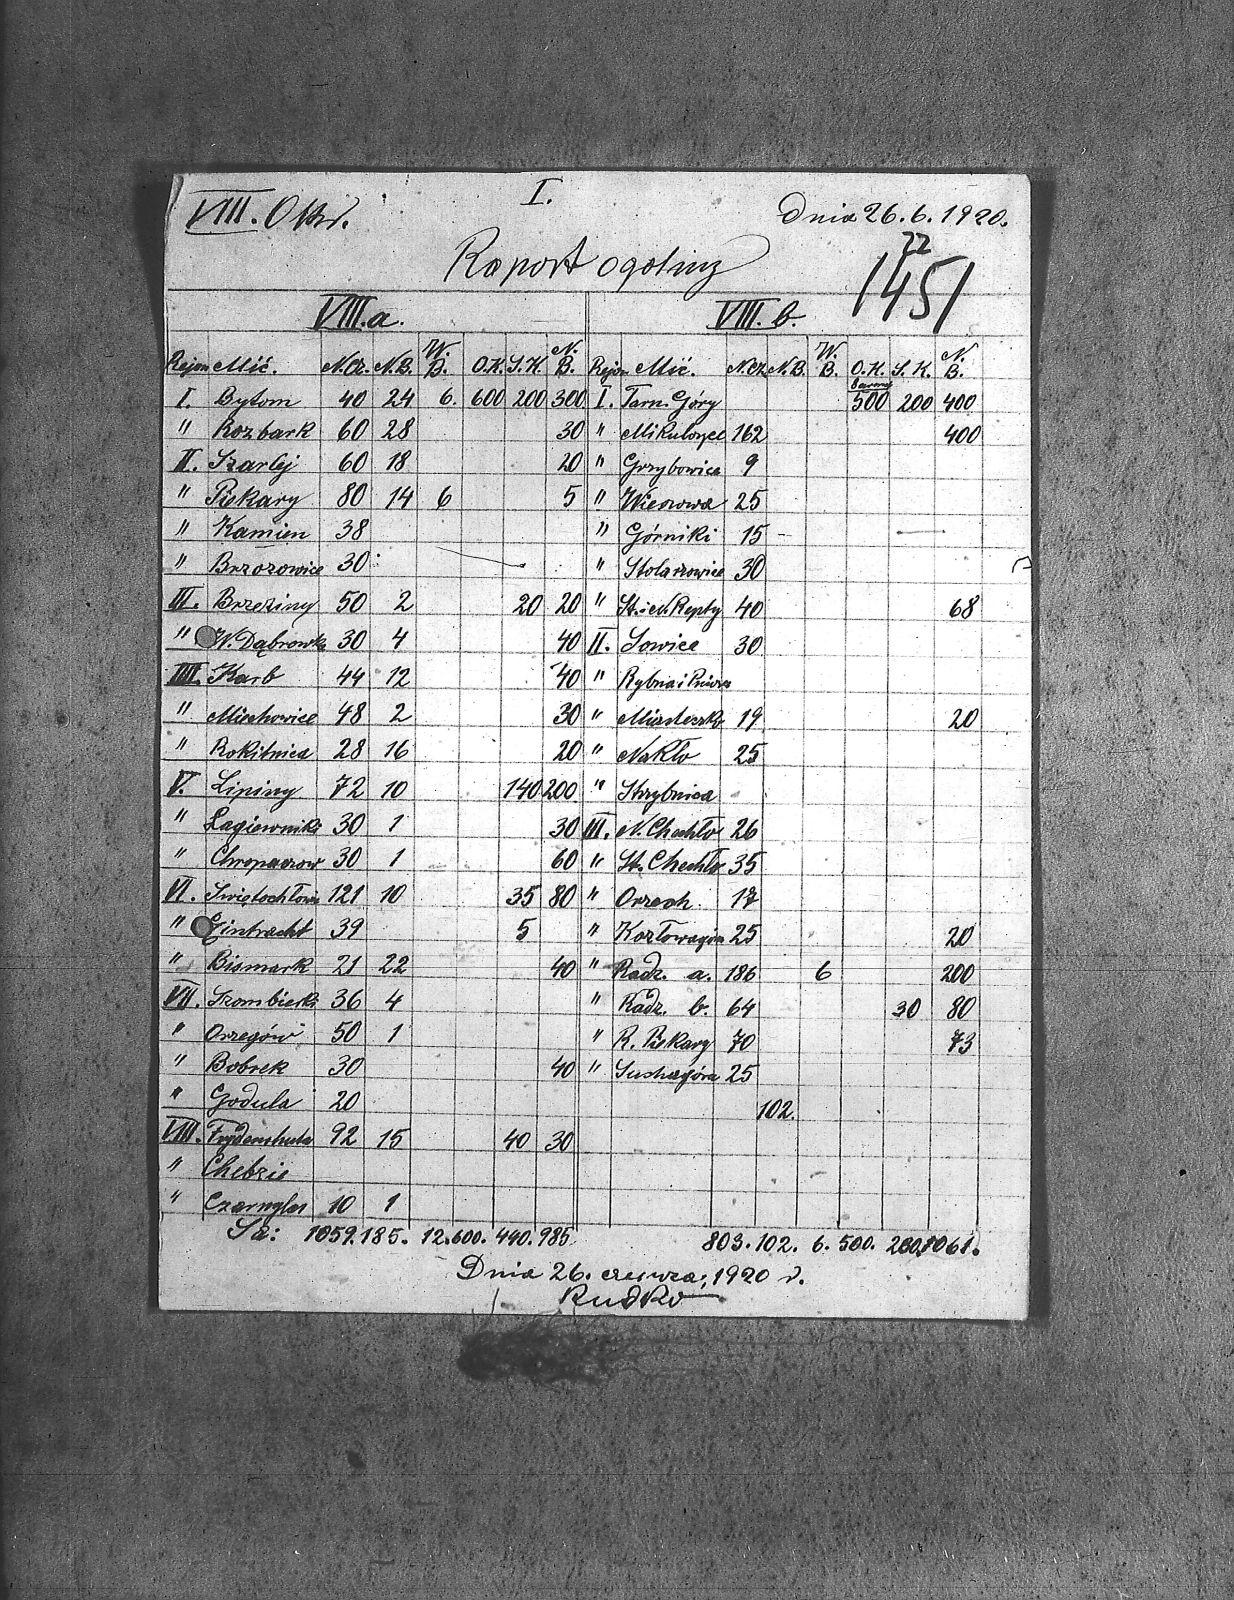 I.
VIII. Okr. Dnia 26. 6. 1920.
22
Raport ogólny 1451
VIII.a. VIII. b.
Rejon Mić. N.Cz. N.B. W.B. O.K. S.K. N.B. Rejon Mić. N.Cz. N.B. W.B. O.K. S.K. N.B.
I. Bytom 40 24 6. 600 200 300 I. Tarn. Góry 500 200 400
" Rozbark 60 28 30 " Mikulczyce 162 400
II. Szarlej 60 18 20 " Grzybowice 9
" Piekary 80 14 6 5 " Wieszowa 25
" Kamien 38 " Górniki 15 -
" Brzozowice 30 " Stolarzowice 30
III. Brzeziny 50 2 20 20 " St. i ch. Repty 40 68
" W. Dąbrowka 30 4 40 II. Sowice 30
IIII. Karb 44 12 40 " Rybna i
" Miechowice 48 2 30 " Miasteczko 19 20
" Rokitnica 28 16 20 " Nakło 25
V. Lipiny 72 10 140 200 " Strybnica
" Łagiewniki 30 1 30 III. N. Chechło 26
" Chropaczow 30 1 60 " St. Chechło 35
VI. Swiętochłowi 121 10 35 80 " Orzech 17
" Eintracht 39 5 " Kozłowagóra 25 20
" Bismark 21 22 40 " Radz. a. 186 6 200
VII. Szombierki 36 4 " Radz. b. 64 30 80
" Orzegów 50 1 " R. Piekary 70 73
" Bobrek 30 40 " Suchagóra 25
" Godula 20 102.
VIII. Frydenshuta 92 15 40 30
" Chebzie
" Czarnylas 10 1
Sa: 1059. 185. 12. 600. 440. 985. 803. 102. 6. 500. 200. 1061.
Dnia 26. czerwca, 1920 r.
Rudko